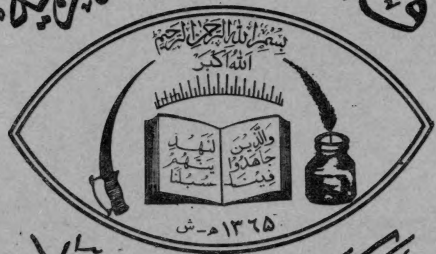 بسم الله الرحمن الرحيم
الله اکبر
والذین
جاهدوا
فینا
لنهد
ینهم
سبلنا
۱۳۶۵ ه‍ـ ش